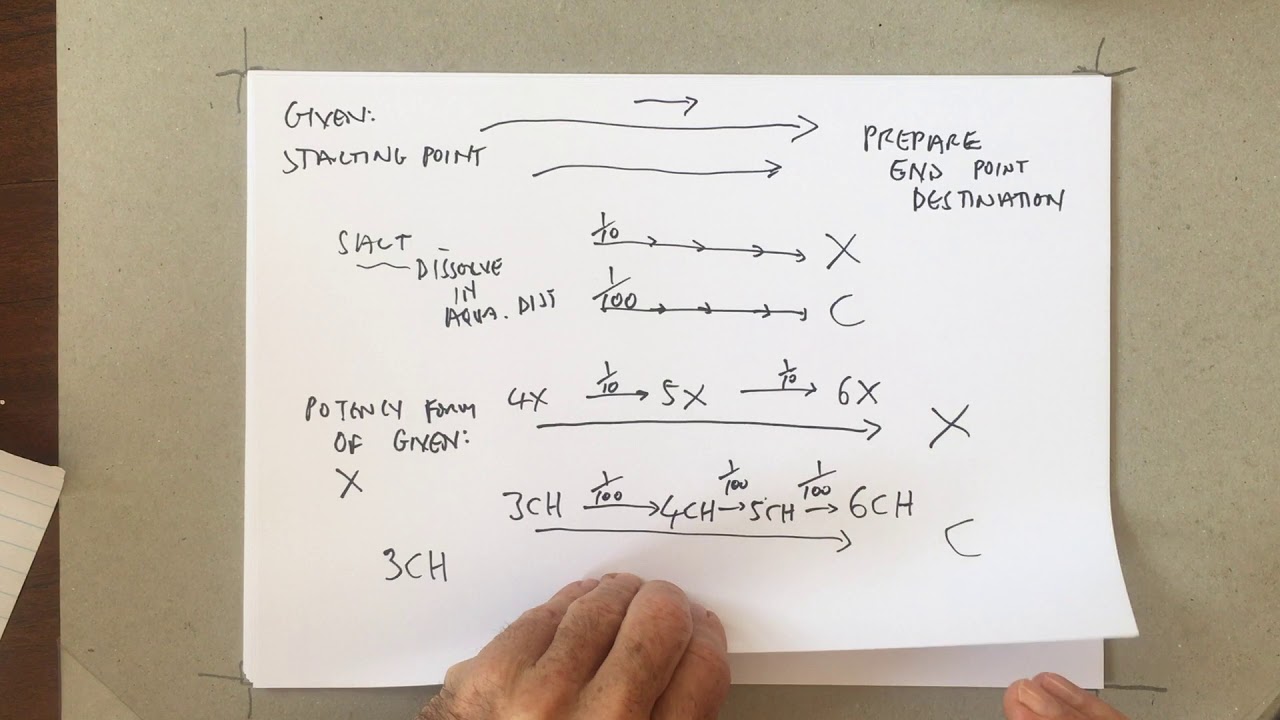 GIVEN:
STARTING POINT
PREPARE
END POINT
DESTINATION
START
DISSOLVE
IN
AQUA. DIST
1/10 X
1/100 C
POTENCY FORM
OF GIVEN:
X
4X 1/10 5X 1/10 6X
X
3CH 1/100 4CH 1/100 5CH 1/100 6CH
C
3CH